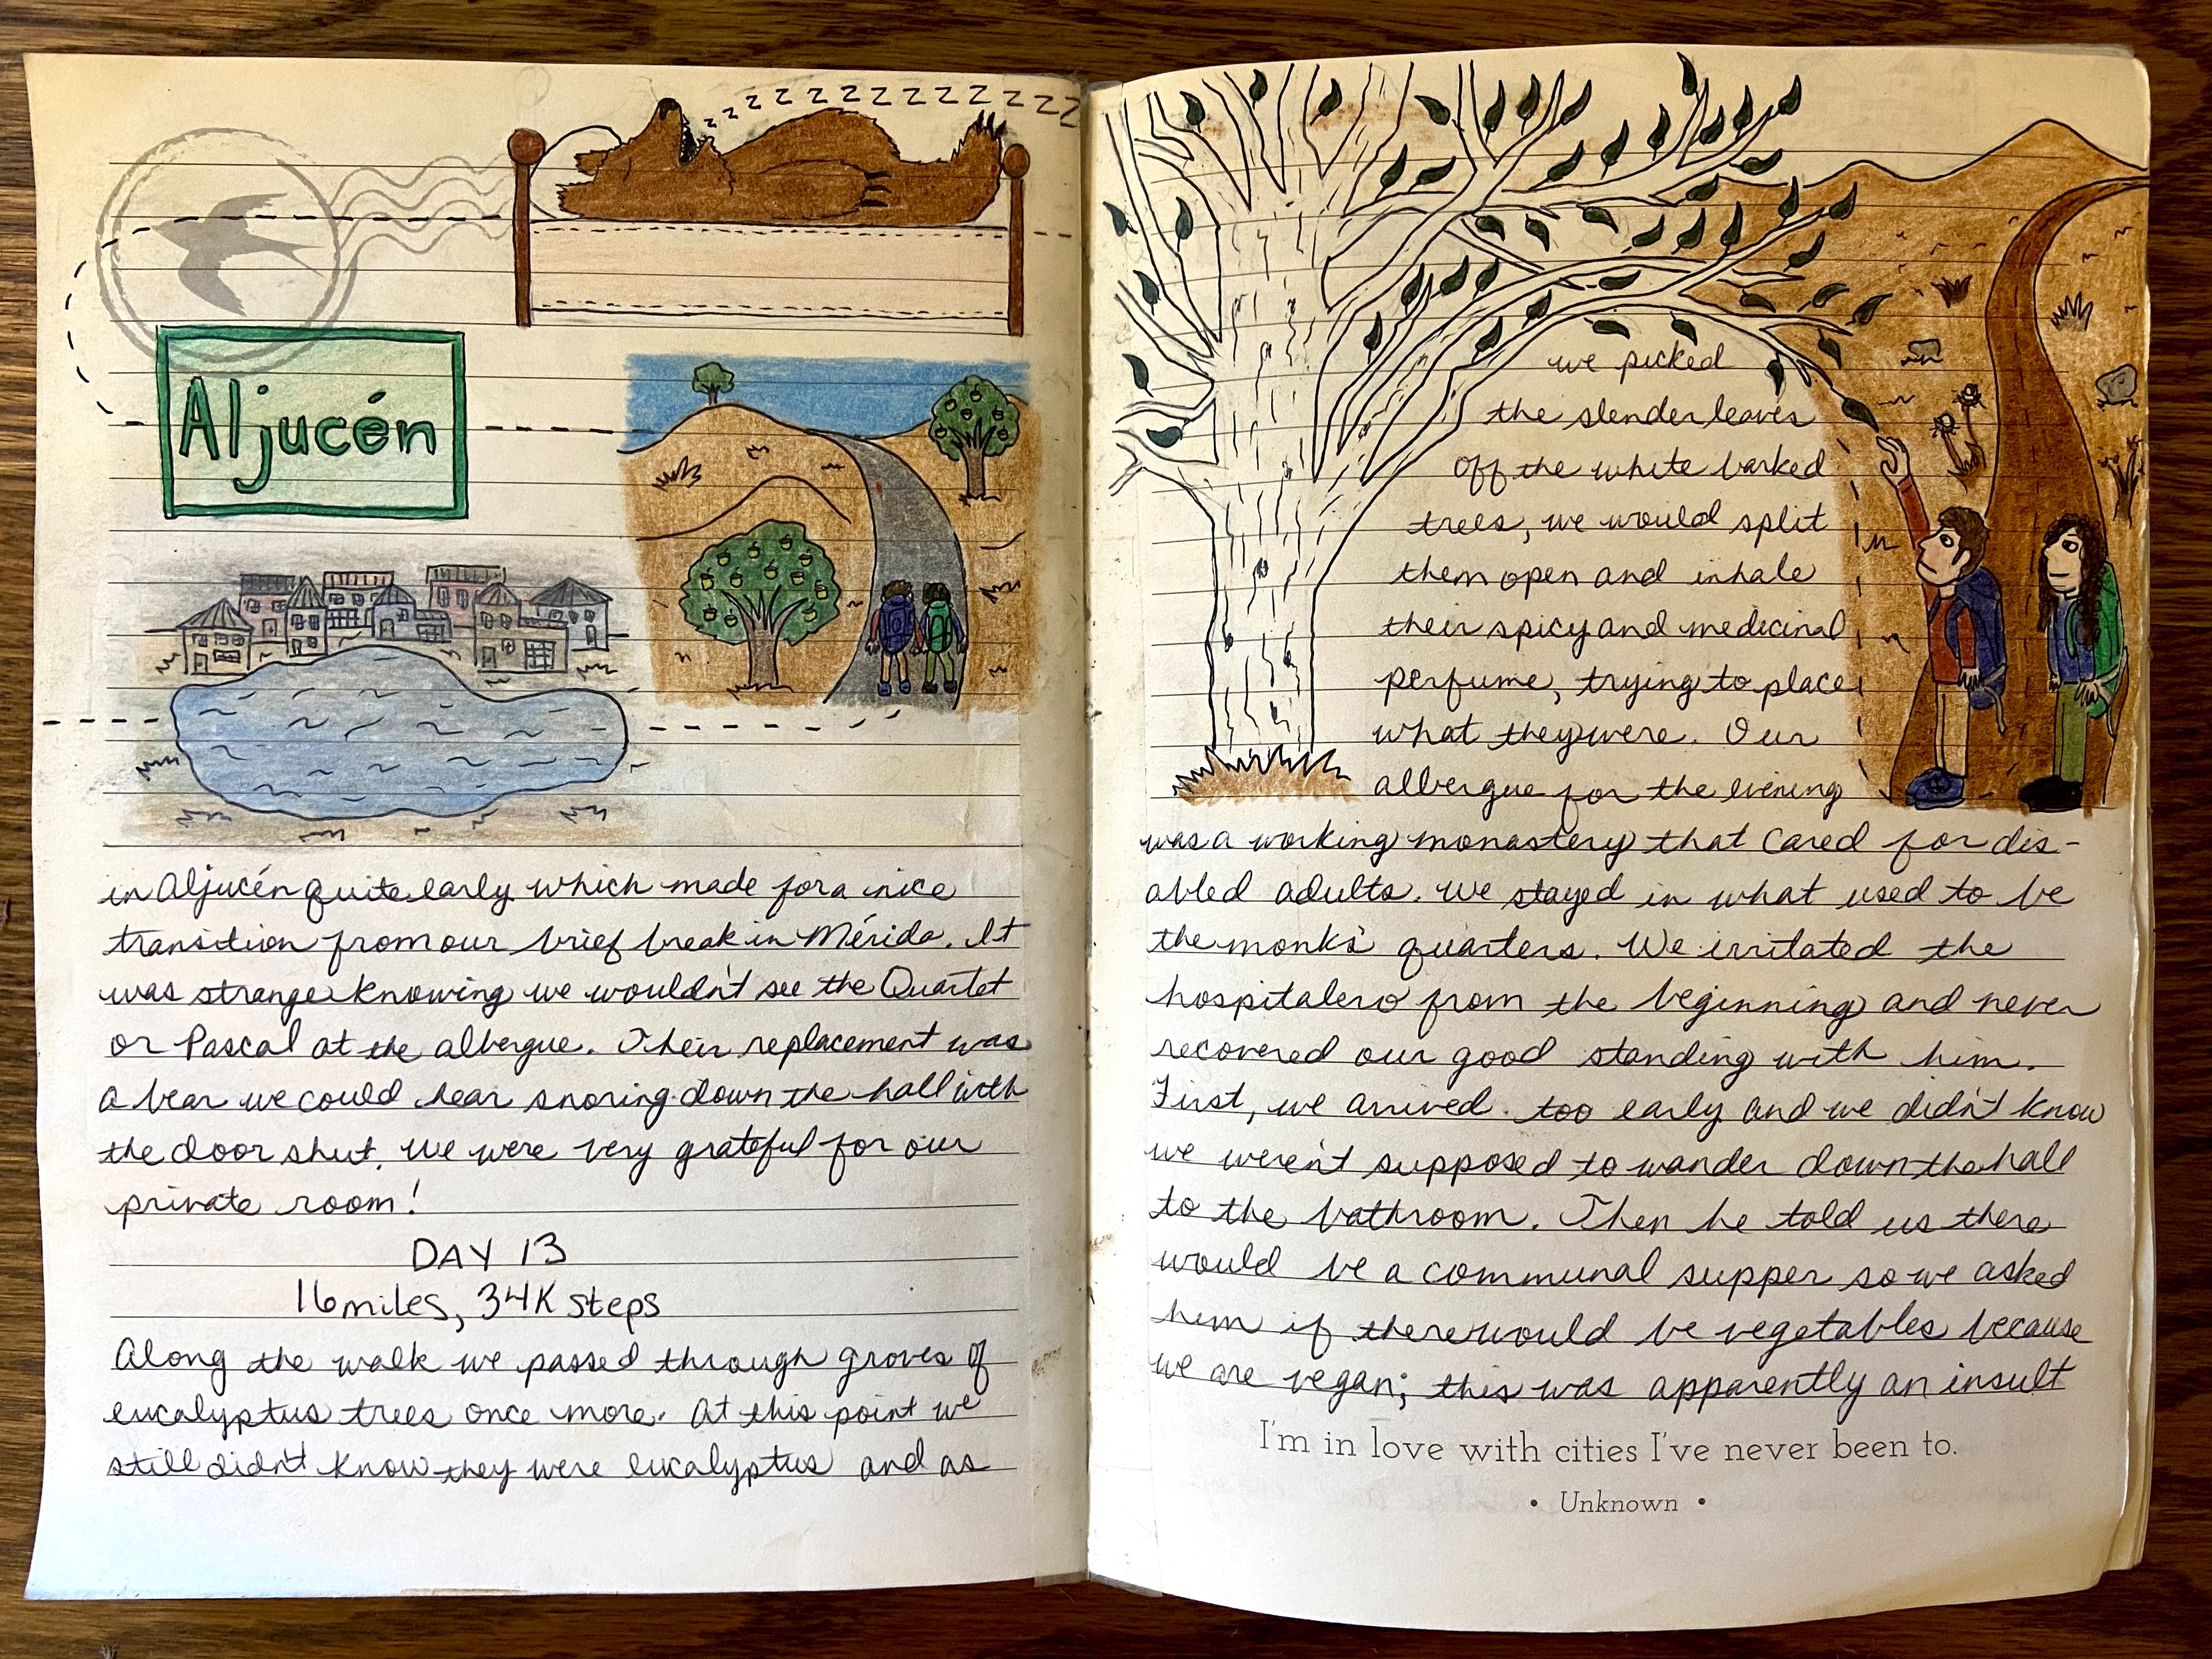 z z z z z z z z z z z z z
Aljucén
in Aljucén quite early which made for a nice
transition from our brief break in Mérida. It
was strange knowing we wouldn't see the Quartet
or Pascal at the albergue. Their replacement was
a bear we could hear snoring down the hall with
the door shut. We were very grateful for our
private room!
DAY 13
16 miles, 34K steps
Along the walk we passed through groves of
eucalyptus trees once more. At this point we
still didn't know they were eucalyptus and as
we picked
the slender leaves
off the white barked
trees, we would split
them open and inhale
their spicy and medicinal
perfume, trying to place
what they were. Our
albergue for the evening
was a working monastery that cared for dis-
abled adults. We stayed in what used to be
the monk's quarters. We irritated the
hospitalero from the beginning and never
recovered our good standing with him.
First, we arrived too early and we didn't know
we weren't supposed to wander down the hall
to the bathroom. Then he told us there
would be a communal supper so we asked
him if there would be vegetables because
we are vegan; this was apparently an insult
I'm in love with cities I've never been to.
• Unknown •